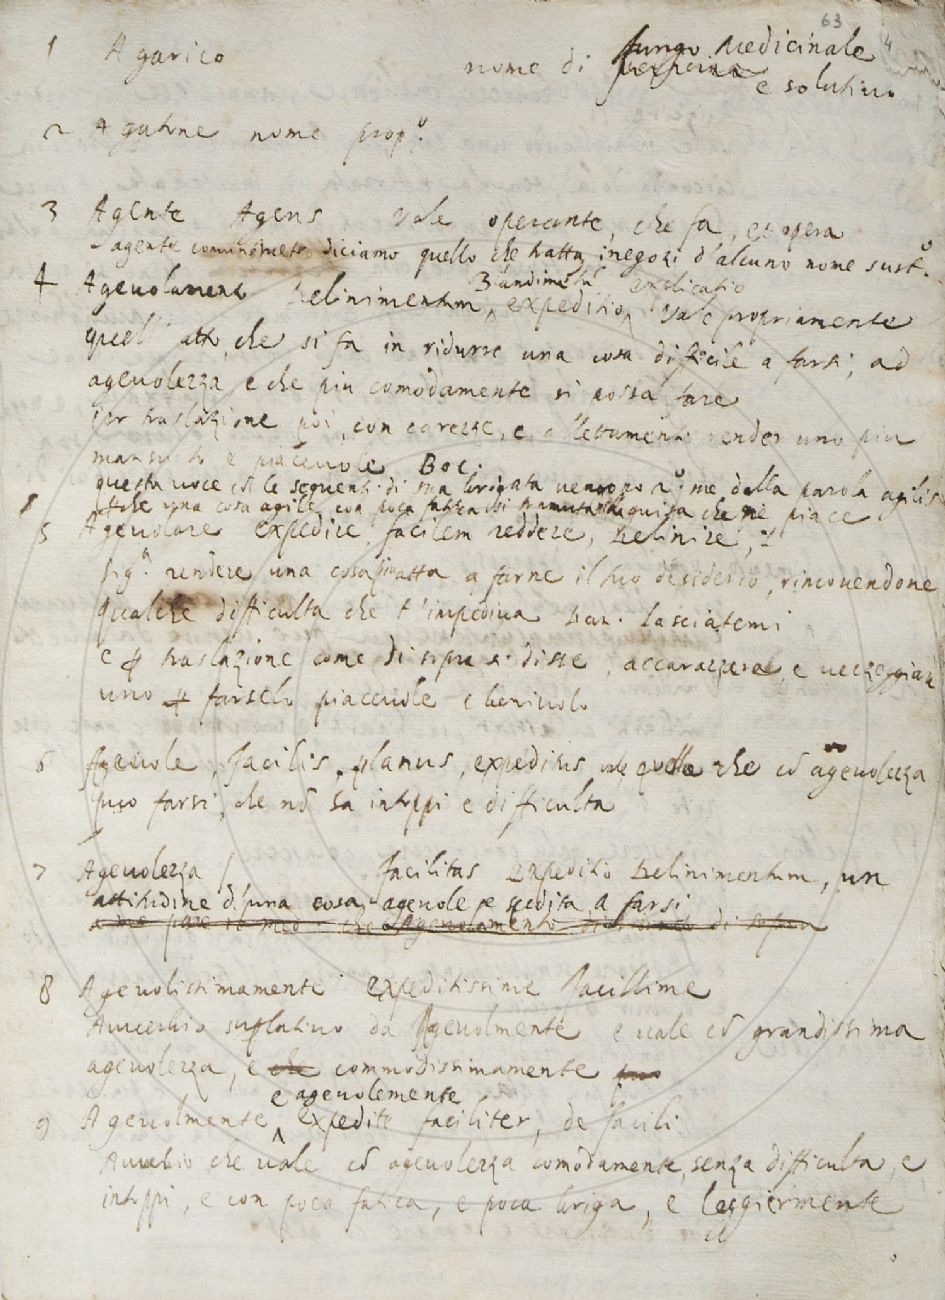 63
1 Agarico nome di fungo Medicinale
e solutivo
2 Agatone nome prop.º
3 Agente Agens vale operante, che fa, et opera
agente diciamo quello che tratta i negozi d'alcuno nome sust.º
4 Agevolamento Delinimentum, expeditio, explicatio vale propriamente
quell' atto, che si fa in ridurre una cosa difficile a farsi, ad
agevolezza e che piu comodamente si possa fare
per traslazione poi, con carezze, e allettamenti render uno piu
mansueto e piacevole Boc.
questa voce cõ le seguenti di sua brigata vengono dalla parola agilis
che una cosa agile con poca fatica che ne piace
5 Agevolare expedire, facilem reddere, Delinire,
sig.ª rendere una cosa piu atta a farne il suo desiderio, rimovendone
qualche difficulta che l'impediva lasciatemi
e ꝑ traslazione come di sopra si disse, accarezzare e vezzeggiare
uno ꝑ farselo piacevole e benivolo
6 Agevole, facilis, planus, expeditus vale quello che cõ agevolezza
puo farsi, che nõ ha intoppi e difficulta
7 Agevolezza facilitas Expeditio Delinimentum, un
attitudine d'una cosa agevole e spedita a farsi
che Agevolamento di sopra
8 Agevolissimamente expeditissime facillime
Avverbio suꝑlativo da Agevolmente e vale cõ grandissima
agevolezza, e che commodissimamente
9 Agevolmente e agevolemente expedite faciliter, de facili
Avverbio che vale cõ agevolezza comodamente, senza difficulta, e
intoppi, e con poca fatica, e poca briga, e leggiermente